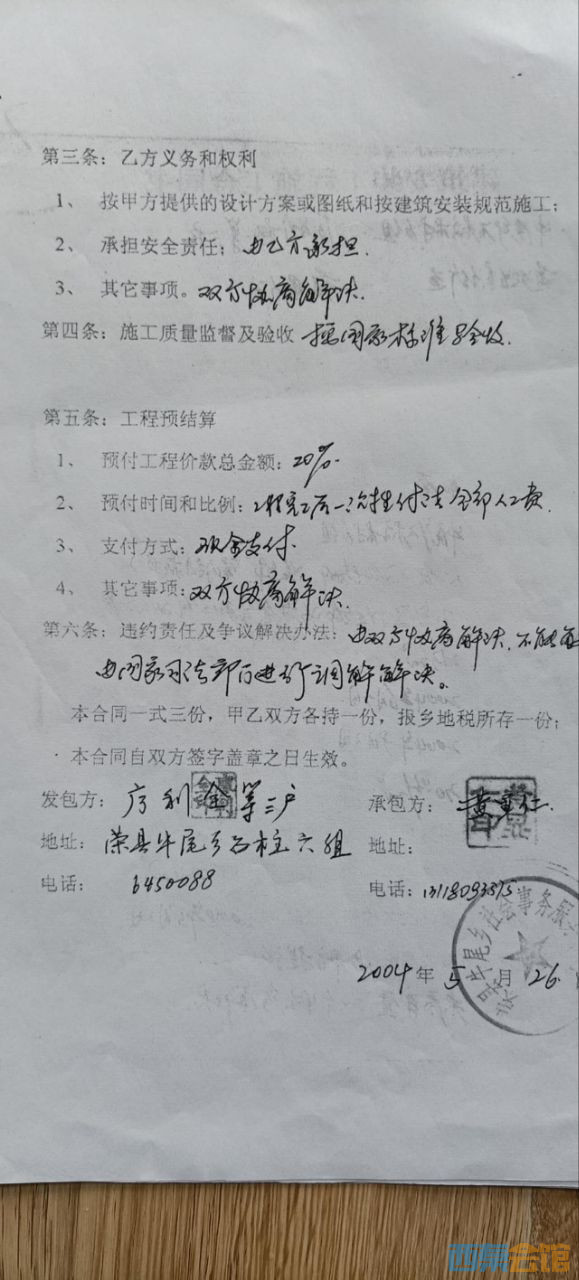 第三条：乙方义务和权利
1、 按甲方提供的设计方案或图纸和按建筑安装规范施工；
2、 承担安全责任；由乙方承担.
3、 其它事项。双方协商解决.
第四条：施工质量监督及验收 按国家标准验收.
第五条：工程预结算
1、 预付工程价款总金额：20%.
2、 预付时间和比例：工程完工后一次性付清全部人工费.
3、 支付方式：现金支付.
4、 其它事项：双方协商解决.
第六条：违约责任及争议解决办法：由双方协商解决.不能
由国家司法部门进行调解解决。
本合同一式三份，甲乙双方各持一份，报乡地税所存一份；
本合同自双方签字盖章之日生效。
发包方： 利金等三户 承包方： 黄 仁
地址： 荣县牛尾乡石柱六组 地址：
电话： 6450088 电话：
2004年5月26
牛尾乡社会事务服
西风会馆